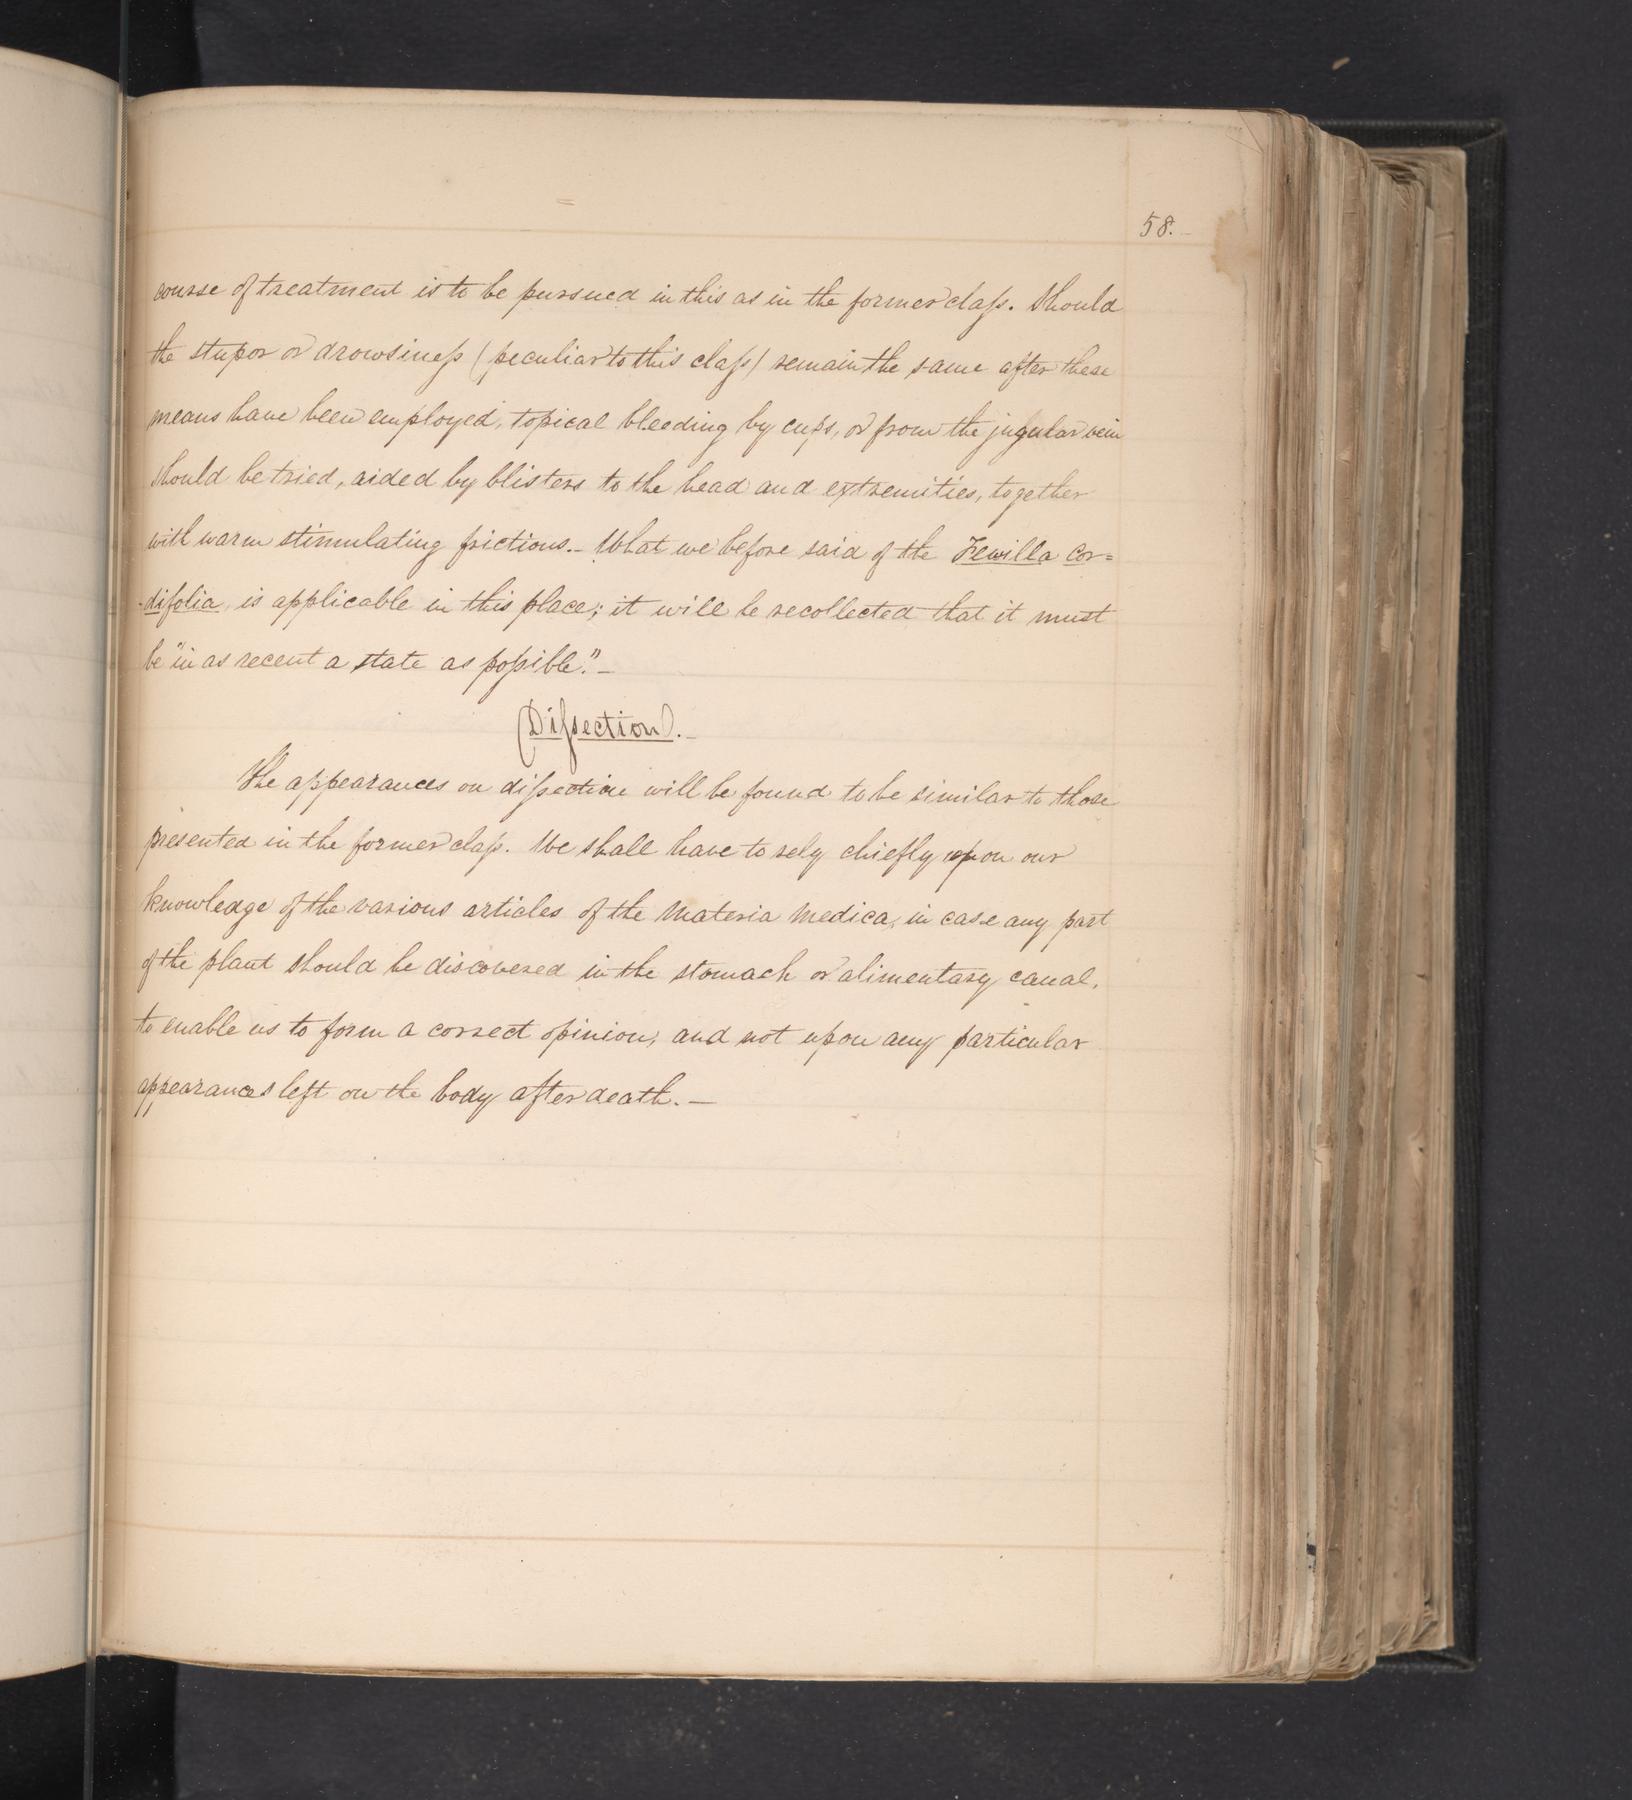 58.
course of treatment is to be pursued in this as in the former claſs. Should
the stupor or drowsineſs (peculiar to this claſs) remain the same after these
means have been employed, topical bleeding by cups, or from the jugular vein
should be tried, aided by blisters to the head and extremities, together
with warm stimulating frictions.- What we before said of the Fewilla Cor=
-difolia, is applicable in this place; it will be recollected that it must
be "in as recent a state as poſsible".-
(Diſsection).-
The appearances on diſsection will be found to be similar to those
presented in the former claſs. We shall have to rely chiefly upon our
knowledge of the various articles of the Materia Medica, in case any part
of the plant should be discovered in the stomach or alimentary canal,
to enable us to form a correct opinion, and not upon any particular
appearances left on the body after death.—